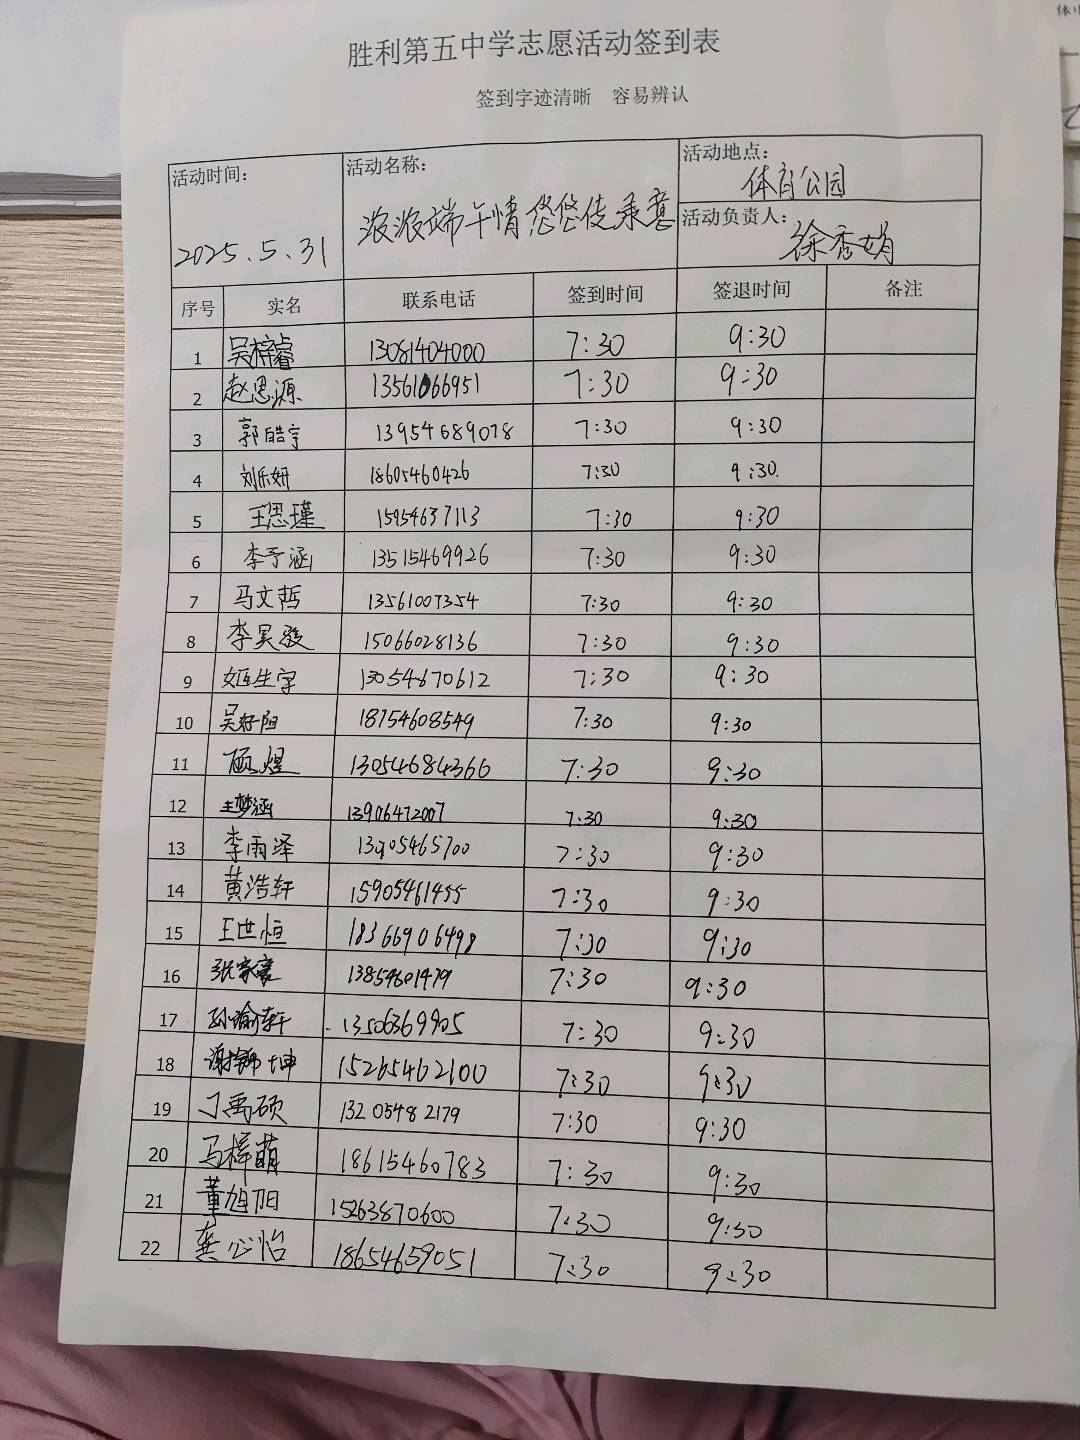 胜利第五中学志愿活动签到表
签到字迹清晰 容易辨认
活动时间: 2025.5.31
活动名称: 浓浓端午情 悠悠传承意
活动地点: 体育公园
活动负责人: 徐秀娟
序号 实名 联系电话 签到时间 签退时间 备注
1 吴梓睿 13081404000 7:30 9:30
2 赵思源 13561066951 7:30 9:30
3 郭皓宇 13954689078 7:30 9:30
4 刘乐妍 18605460426 7:30 9:30
5 王思瑾 15954637113 7:30 9:30
6 李予涵 13515469926 7:30 9:30
7 马文哲 13561007354 7:30 9:30
8 李昊骏 15066028136 7:30 9:30
9 生宇 13054670612 7:30 9:30
10 吴好阳 18754608549 7:30 9:30
11 煜 13054684366 7:30 9:30
12 王梦涵 13906472007 7:30 9:30
13 李雨泽 13905465700 7:30 9:30
14 黄浩轩 15905461455 7:30 9:30
15 王世恒 18366906498 7:30 9:30
16 张家豪 13854601479 7:30 9:30
17 孙瑜轩 13506369905 7:30 9:30
18 谢锦坤 15265462100 7:30 9:30
19 丁禹硕 13205482179 7:30 9:30
20 马梓萌 18615460783 7:30 9:30
21 董旭阳 15263870600 7:30 9:30
22 龚心怡 18654659051 7:30 9:30